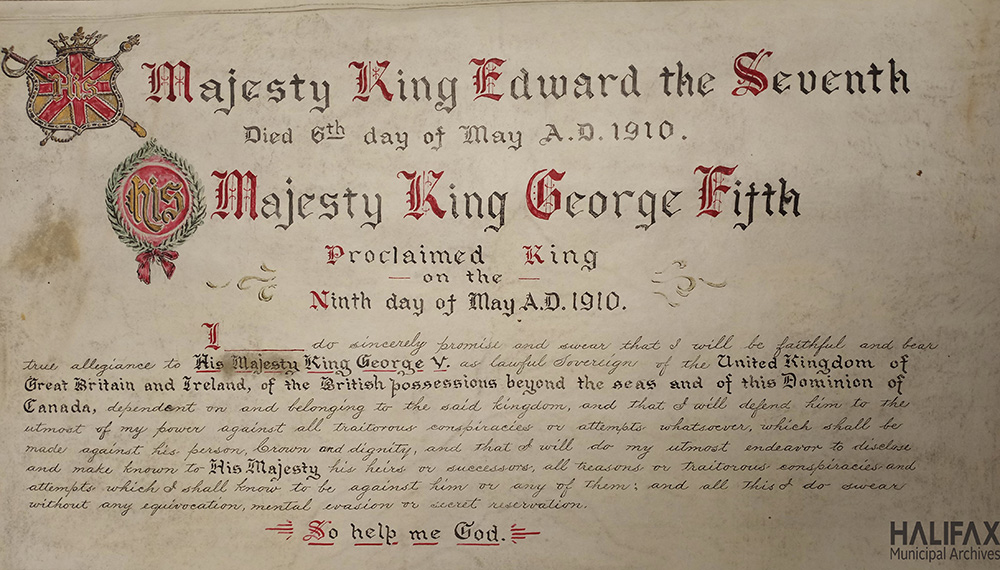 His Majesty King Edward the Seventh
Died 6th day of May A.D. 1910.
His Majesty King George Fifth
Proclaimed King
— on the —
Ninth day of May A.D. 1910.
I ________ do sincerely promise and swear that I will be faithful and bear
true allegiance to His Majesty King George V. as lawful Sovereign of the United Kingdom of
Great Britain and Ireland, of the British possessions beyond the seas and of this Dominion of
Canada, dependent on and belonging to the said kingdom, and that I will defend him to the
utmost of my power against all traitorous conspiracies or attempts whatsoever, which shall be
made against his person, Crown and dignity, and that I will do my utmost endeavor to disclose
and make known to His Majesty his heirs or successors, all treasons or traitorous conspiracies and
attempts which I shall know to be against him or any of them; and all this I do swear
without any equivocation, mental evasion or secret reservation.
So help me God.
HALIFAX
Municipal Archives